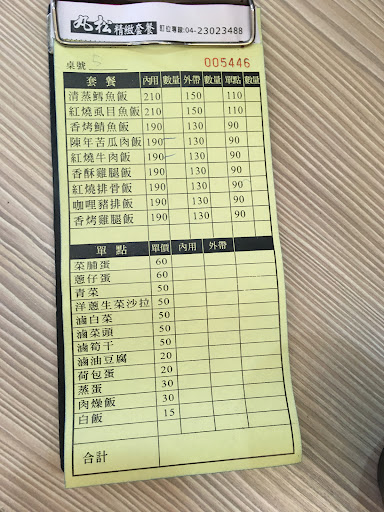 丸松精緻套餐 訂位專線:04-23023488
桌號 5 005446
套餐 內用 數量 外帶 數量 單點 數量
清蒸鱈魚飯 210 150 110
紅燒虱目魚飯 210 150 110
香烤鯖魚飯 190 130 90
陳年苦瓜肉飯 190 130 90
紅燒牛肉飯 190 130 90
香酥雞腿飯 190 130 90
紅燒排骨飯 190 130 90
咖哩豬排飯 190 130 90
香烤雞腿飯 190 130 90
單點 單價 內用 外帶
菜脯蛋 60
蔥仔蛋 60
青菜 50
洋蔥生菜沙拉 50
滷白菜 50
滷菜頭 50
滷筍干 50
滷油豆腐 20
荷包蛋 20
蒸蛋 30
肉燥飯 30
白飯 15
合計